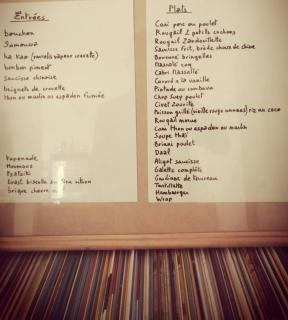 Entrées
bouchon
Samoussa
ha kao (raviolis vapeur crevette)
bonbon piment
saucisse chinoise
beignets de crevette
thon ou marlin ou espadon fumée
Tapenade,
Houmous
Tzatziki
brique chèvre
Plats
Cari porc ou poulet
Rougail 2 petits cochons
Rougail Zandouillette
Saucisse frit, brède chou de chine
Boucané bringelles
Massalé coq
Cabri Massallé
Canard a la vanille
Pintade au combava
Chop Suey poulet
Civet Zourite
Poisson grillé (vieille rouge ananas) riz au coco
Rougail morue
Cari Thon ou espadon ou marlin
Soupe thaï
Briani poulet
Daal
Aligot saucisse
Galette complète
Gardiane de taureau
Tartiflette
Hamburger
Wrap